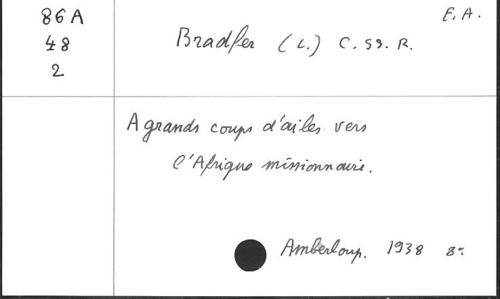 86A
48
2
E.A.
Bradfer (L.) C.SS.R.
A grands coups d'ailes vers
l'Afrique missionnaire.
Amberloup. 1938 8°